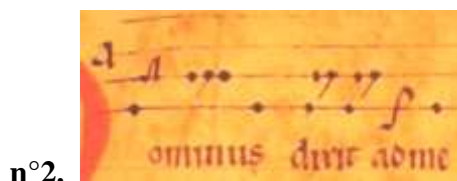 n°2.
ominus dixit ad me